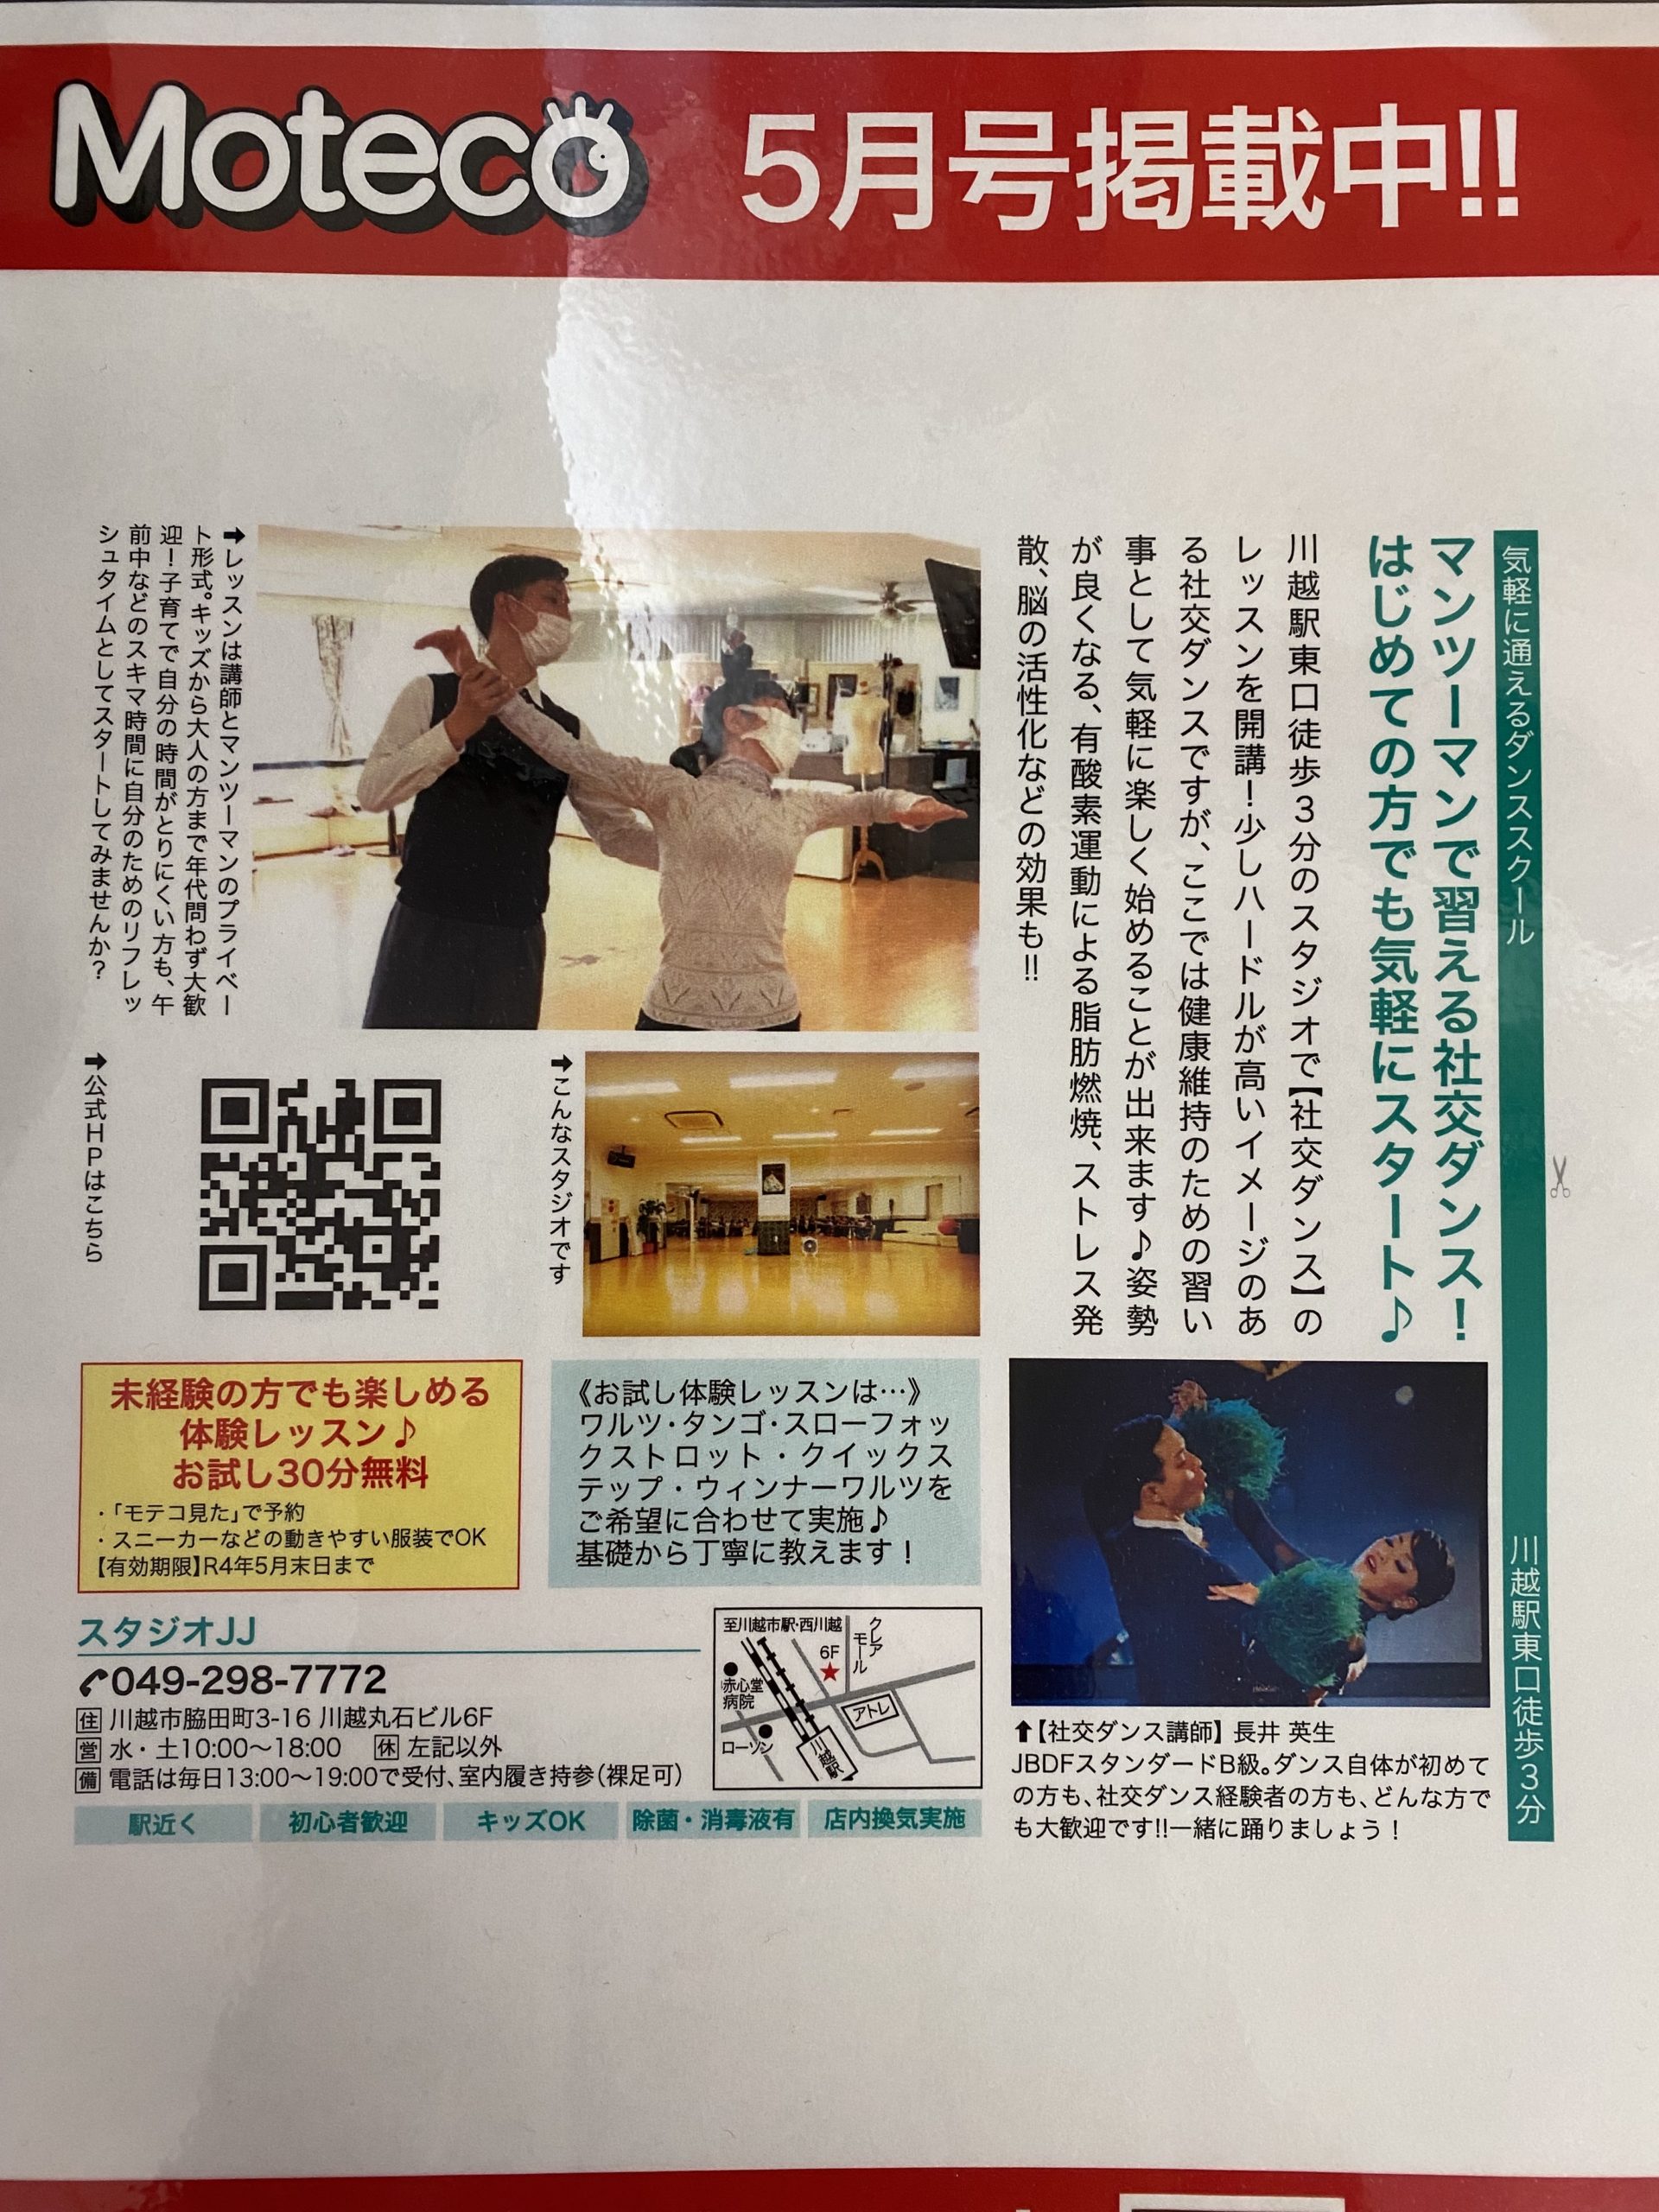 Moteco 5月号掲載中!!
気軽に通えるダンススクール
川越駅東口徒歩3分
マンツーマンで習える社交ダンス!
はじめての方でも気軽にスタート♪
川越駅東口徒歩3分のスタジオで【社交ダンス】の
レッスンを開講!少しハードルが高いイメージのあ
る社交ダンスですが、ここでは健康維持のための習い
事として気軽に楽しく始めることが出来ます♪姿勢
が良くなる、有酸素運動による脂肪燃焼、ストレス発
散、脳の活性化などの効果も!!
➡レッスンは講師とマンツーマンのプライベー
ト形式。キッズから大人の方まで年代問わず大歓
迎!子育てで自分の時間がとりにくい方も、午
前中などのスキマ時間に自分のためのリフレッ
シュタイムとしてスタートしてみませんか?
➡こんなスタジオです
➡公式HPはこちら
⬆【社交ダンス講師】長井 英生
JBDFスタンダードB級。ダンス自体が初めて
の方も、社交ダンス経験者の方も、どんな方で
も大歓迎です!!一緒に踊りましょう!
《お試し体験レッスンは…》
ワルツ・タンゴ・スローフォッ
クストロット・クイックス
テップ・ウィンナーワルツを
ご希望に合わせて実施♪
基礎から丁寧に教えます!
未経験の方でも楽しめる
体験レッスン♪
お試し30分無料
・「モテコ見た」で予約
・スニーカーなどの動きやすい服装でOK
【有効期限】R4年5月末日まで
スタジオJJ
049-298-7772
住 川越市脇田町3-16 川越丸石ビル6F
営 水・土10:00〜18:00 休 左記以外
備 電話は毎日13:00〜19:00で受付、室内履き持参(裸足可)
至川越市駅・西川越
クレアモール
6F
赤心堂
病院
アトレ
ローソン
川越駅
駅近く 初心者歓迎 キッズOK 除菌・消毒液有 店内換気実施